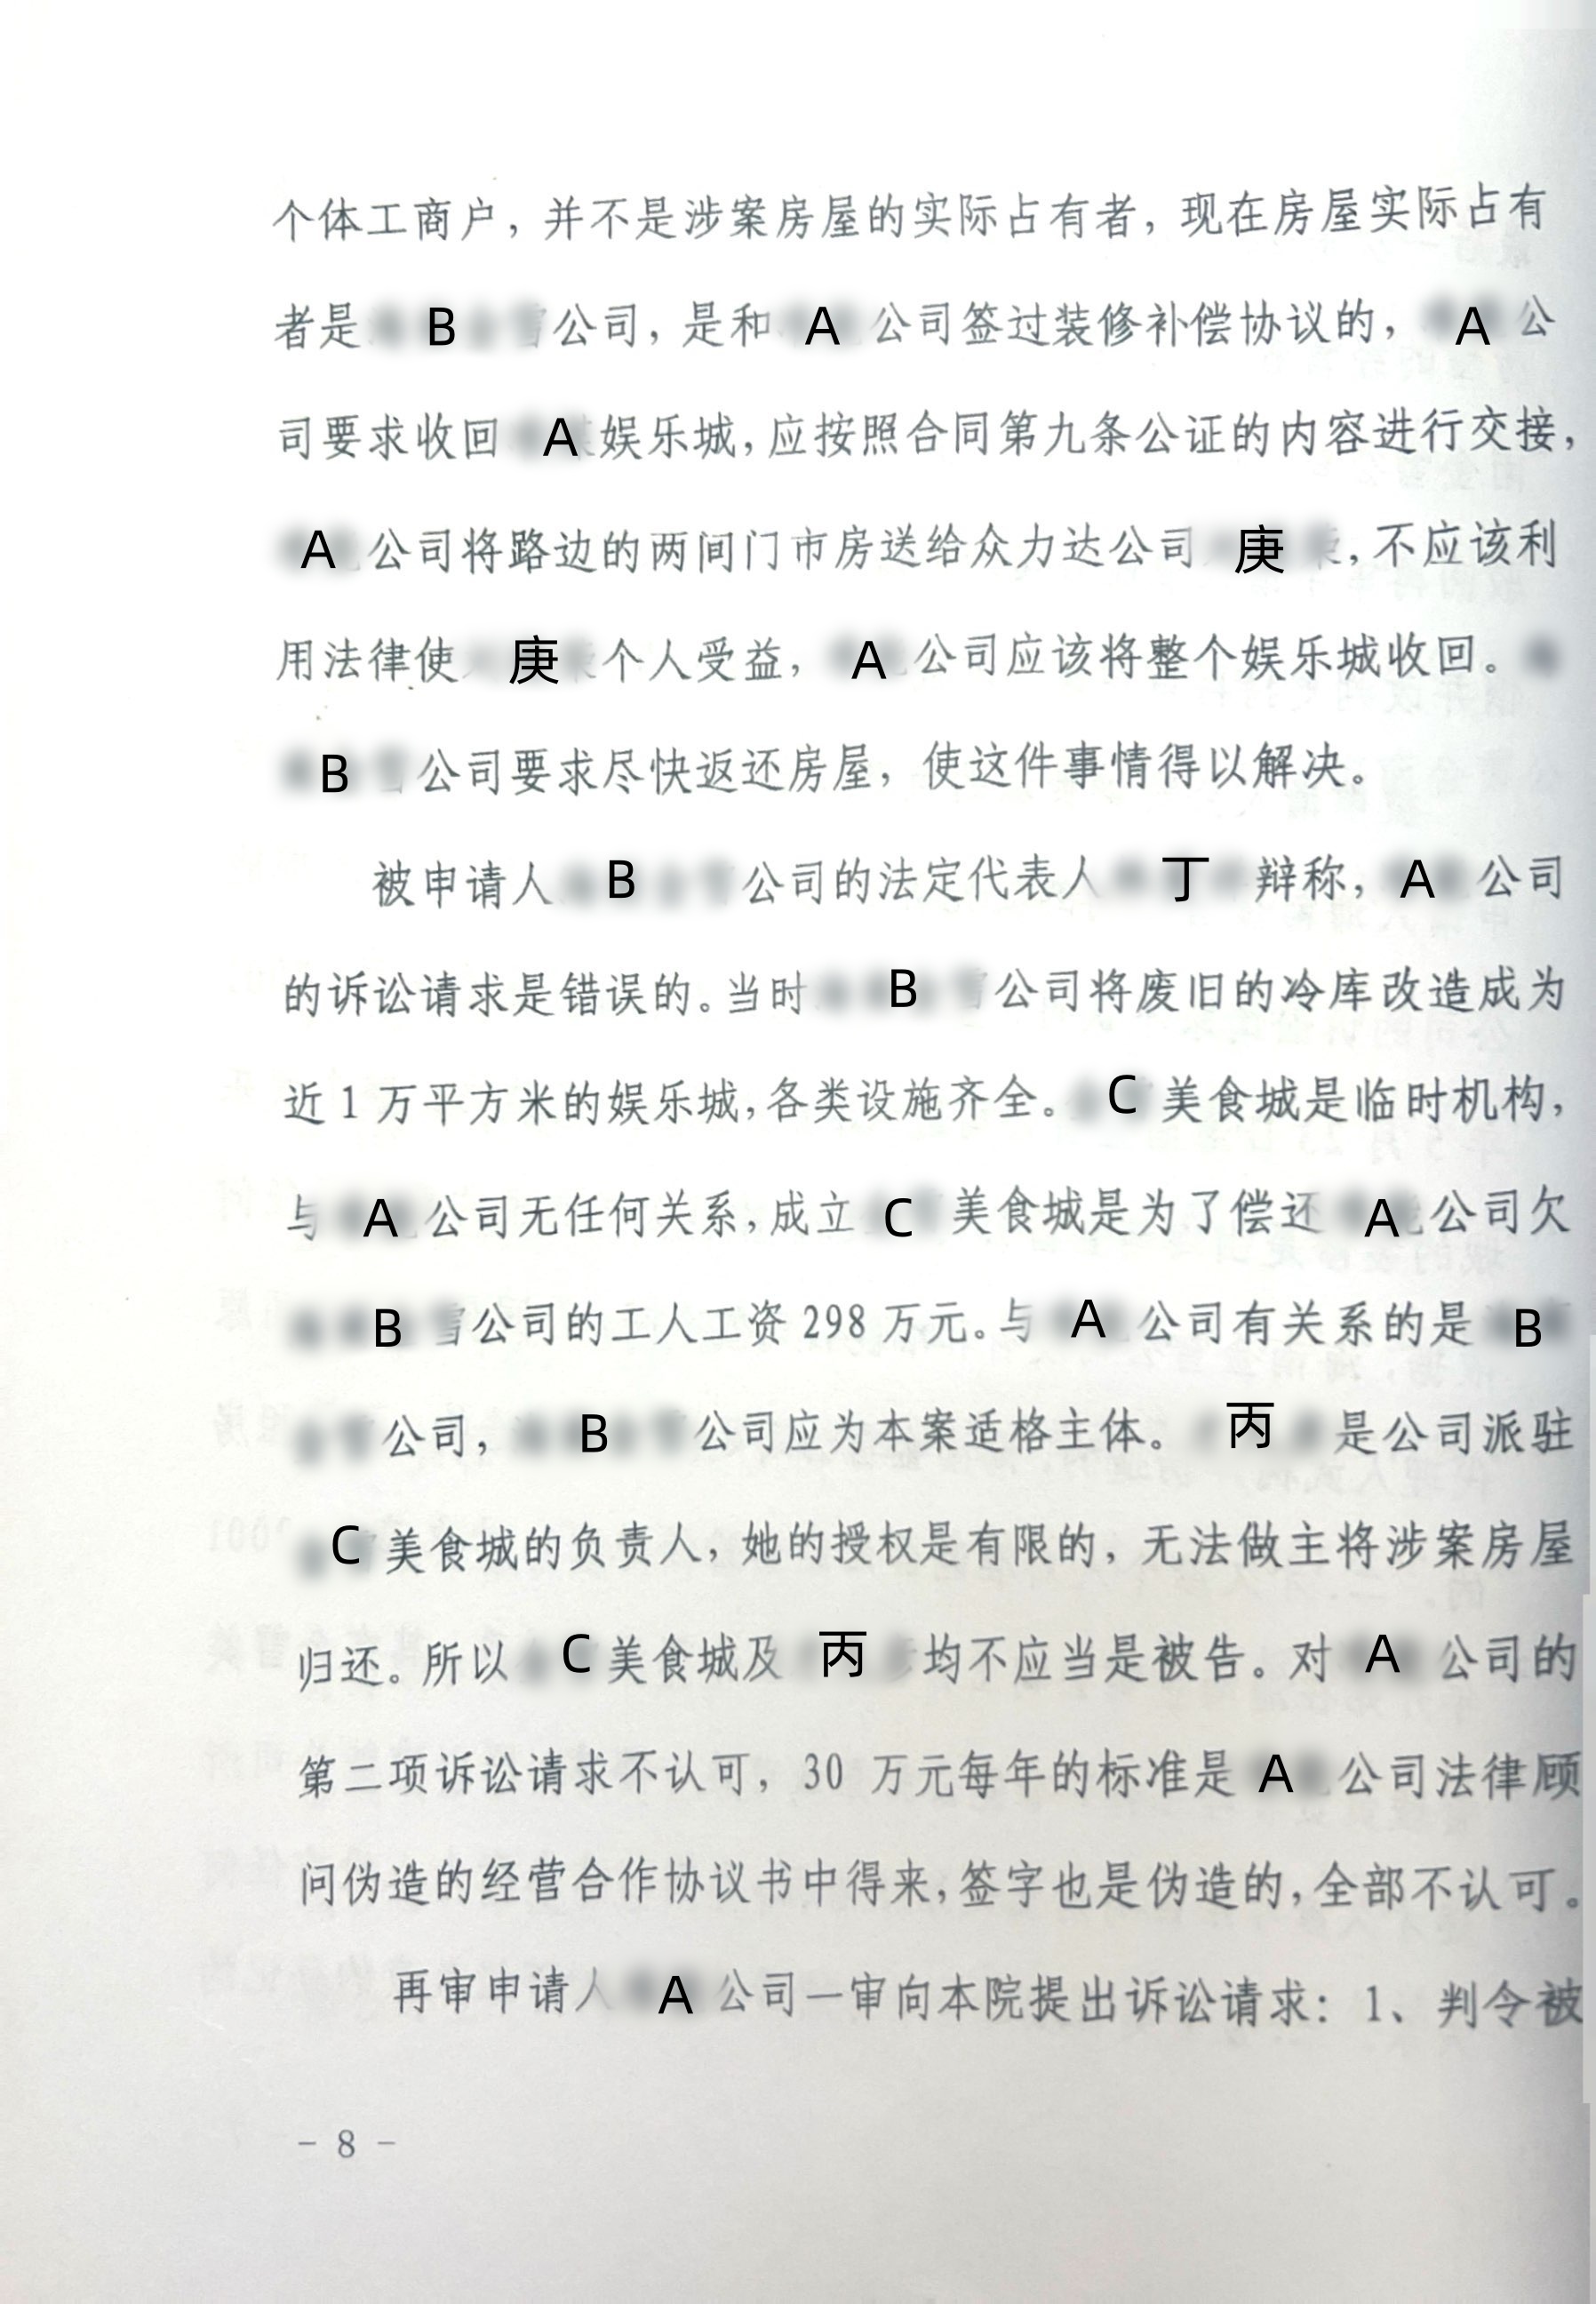 个体工商户，并不是涉案房屋的实际占有者，现在房屋实际占有
者是B公司，是和A公司签过装修补偿协议的，A公
司要求收回A娱乐城，应按照合同第九条公证的内容进行交接，
A公司将路边的两间门市房送给众力达公司庚，不应该利
用法律使庚个人受益，A公司应该将整个娱乐城收回。
B公司要求尽快返还房屋，使这件事情得以解决。
被申请人B公司的法定代表人丁辩称，A公司
的诉讼请求是错误的。当时B公司将废旧的冷库改造成为
近1万平方米的娱乐城，各类设施齐全。C美食城是临时机构，
与A公司无任何关系，成立C美食城是为了偿还A公司欠
B公司的工人工资298万元。与A公司有关系的是B
公司，B公司应为本案适格主体。丙是公司派驻
C美食城的负责人，她的授权是有限的，无法做主将涉案房屋
归还。所以C美食城及丙均不应当是被告。对A公司的
第二项诉讼请求不认可，30万元每年的标准是A公司法律顾
问伪造的经营合作协议书中得来，签字也是伪造的，全部不认可。
再审申请人A公司一审向本院提出诉讼请求：1、判令被
- 8 -